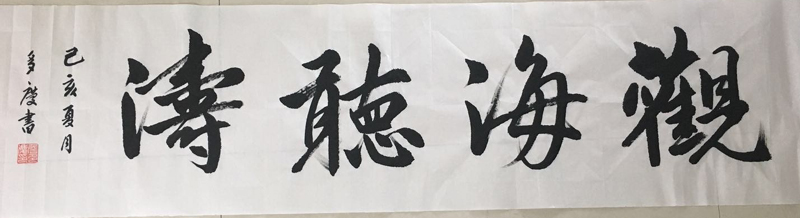 觀海聽濤
己亥夏月
多慶書